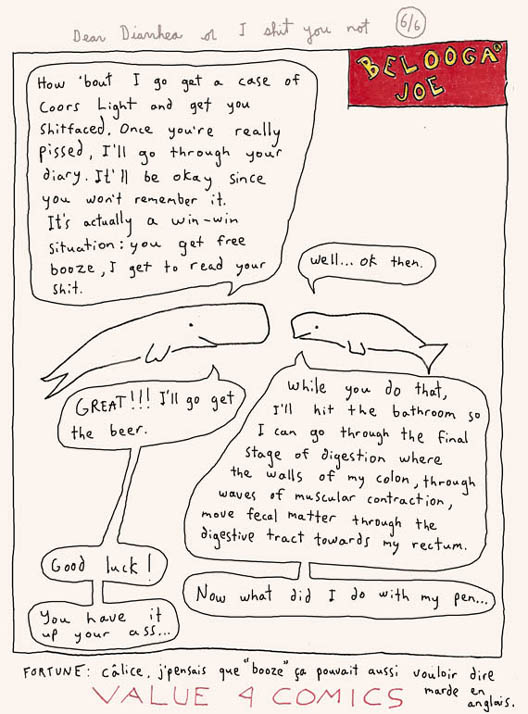 Dear Diarrhea or I shit you not 6/6
BELOOGA"
JOE
How 'bout I go get a case of
Coors Light and get you
shitfaced. Once you're really
pissed, I'll go through your
diary. It'll be okay since
you won't remember it.
It's actually a win-win
situation: you get free
booze, I get to read your
shit.
well... ok then.
GREAT!!! I'll go get
the beer.
while you do that,
I'll hit the bathroom so
I can go through the final
stage of digestion where
the walls of my colon, through
waves of muscular contraction,
move fecal matter through the
digestive tract towards my rectum.
Good luck!
Now what did I do with my pen...
You have it
up your ass...
FORTUNE: câlice, j'pensais que "booze" ça pouvait aussi vouloir dire
marde en
anglais.
VALUE 4 COMICS